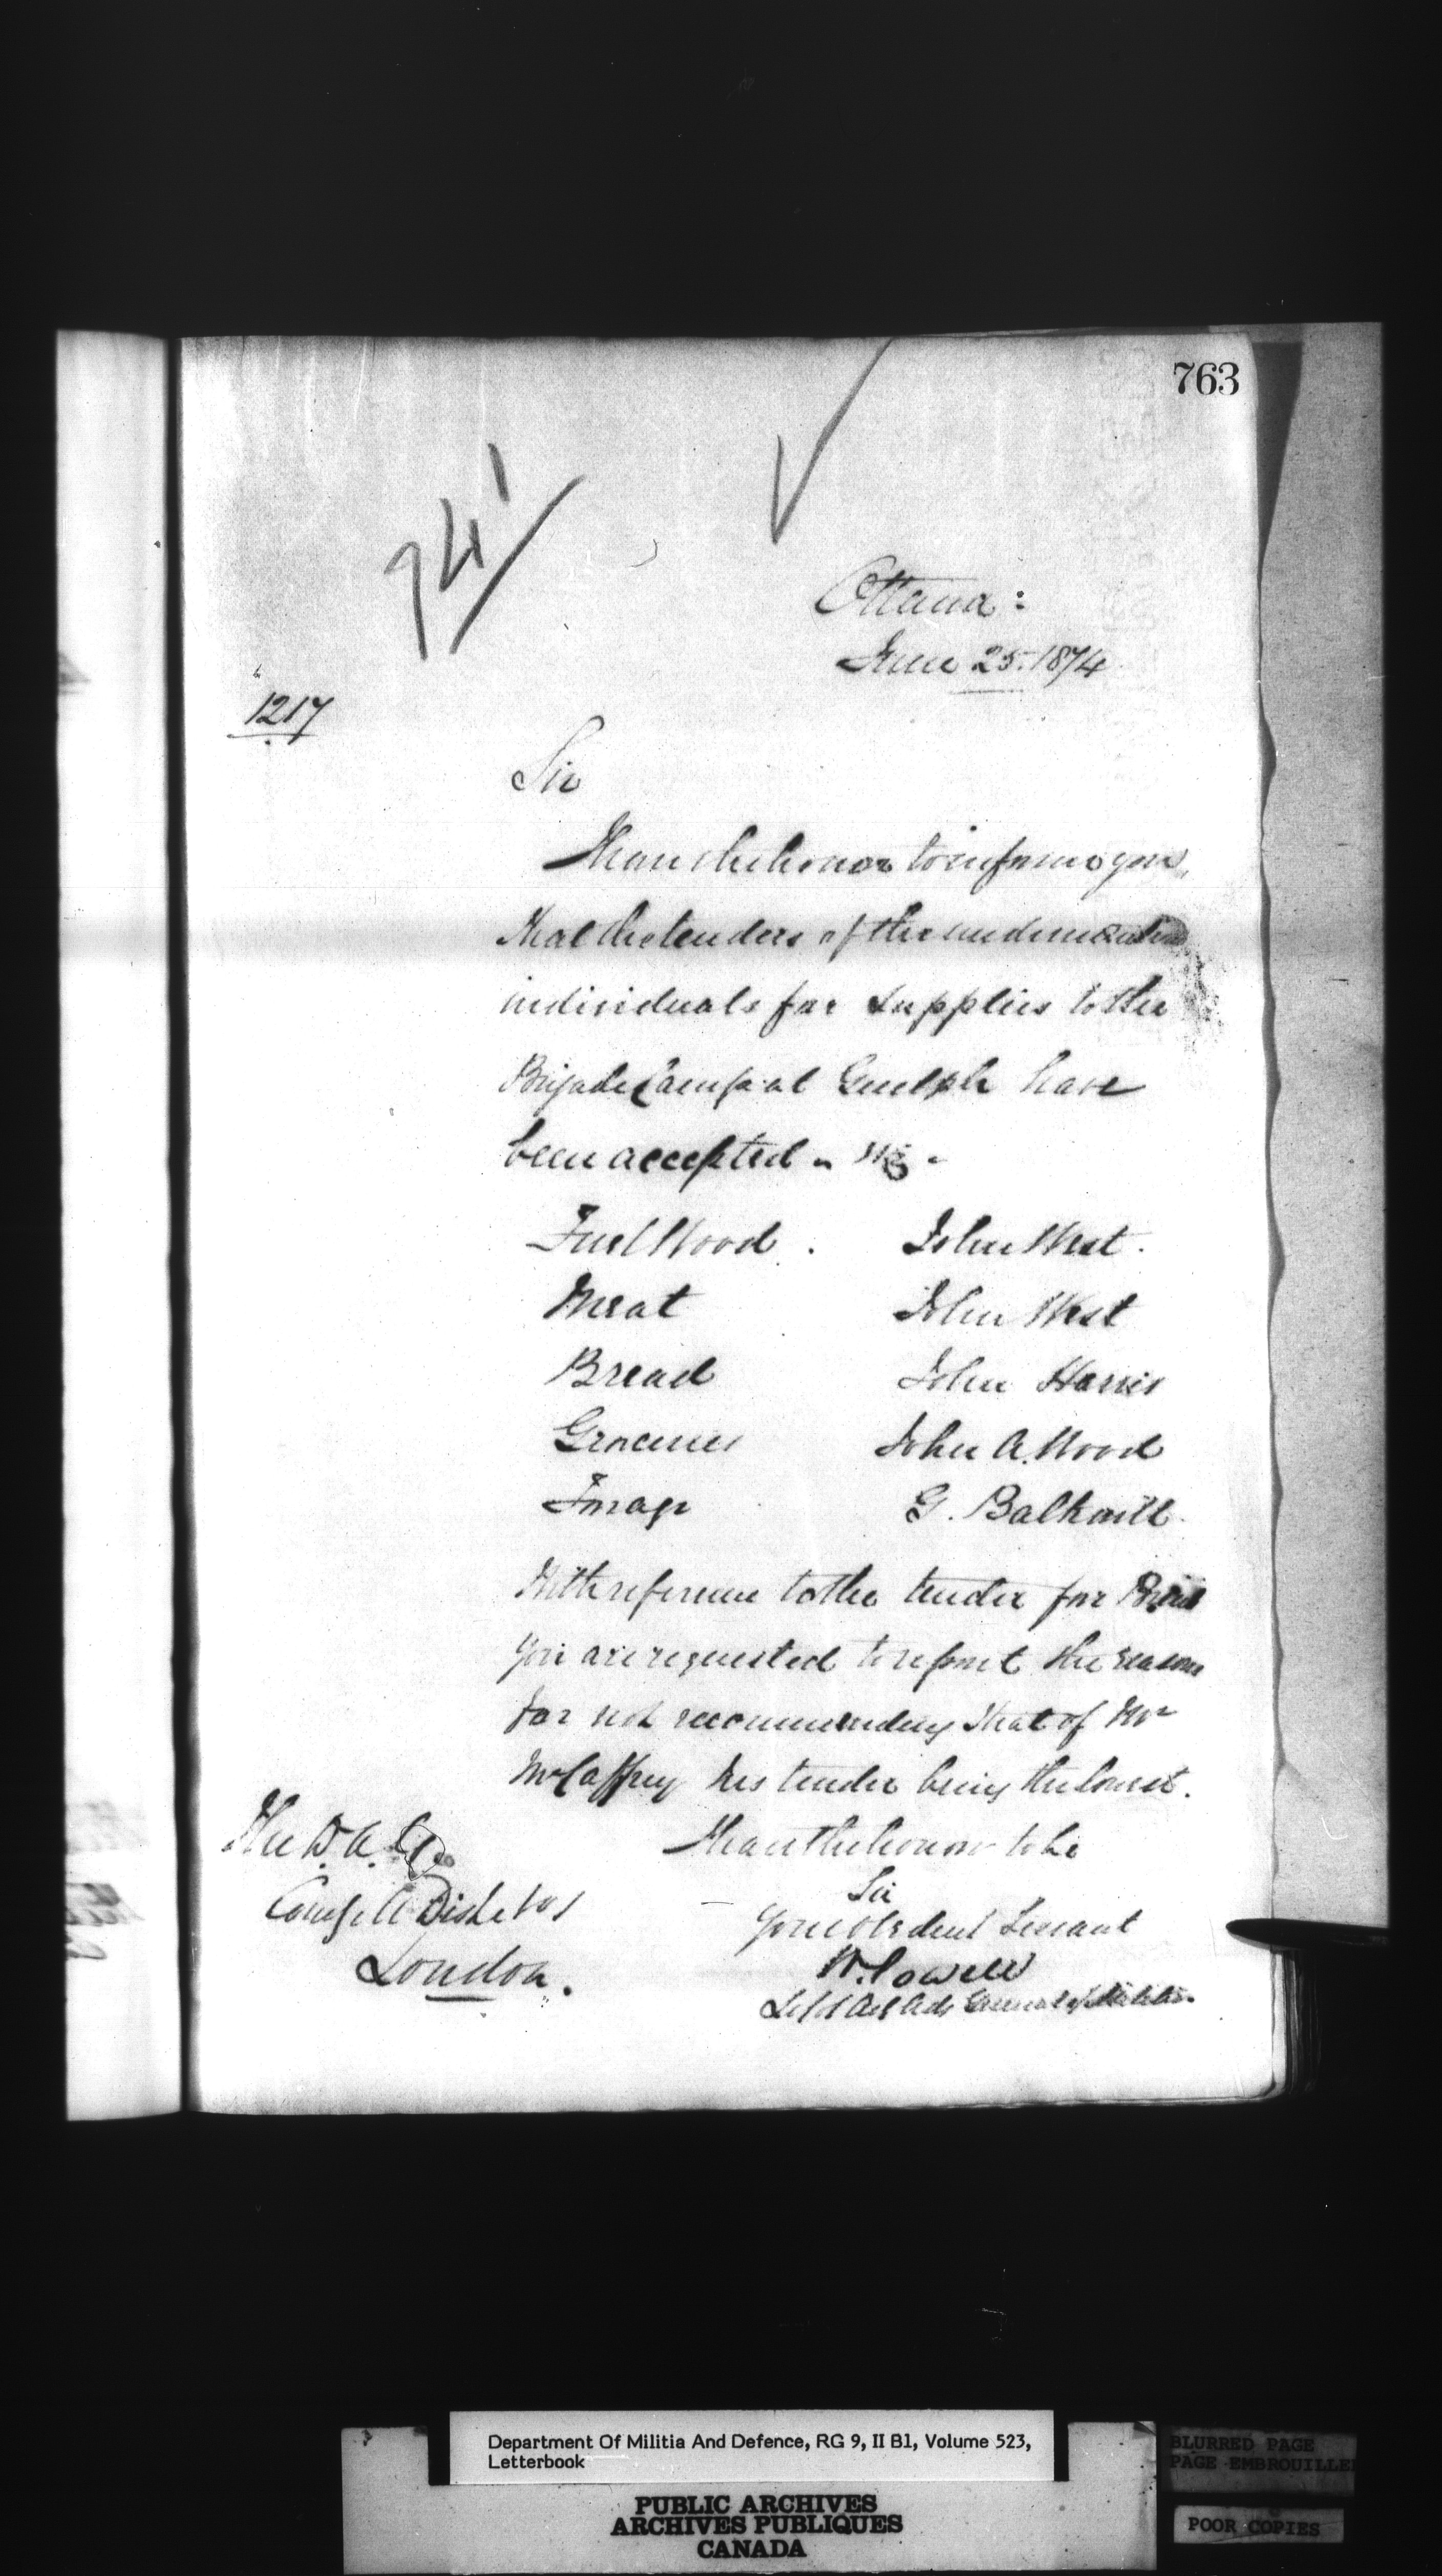 763
941
Ottawa:
June 25. 1874
1217
Sir
I have the honor to inform you,
that the tenders of the undermentioned
individuals for supplies to the
Brigade Camp at Guelph have
been accepted - viz -
Fuel Wood. John West.
Meat John West
Bread John Harris
Groceries John A. Wood
Forage G. Balkwill
With reference to the tender for Bread
you are requested to report the reasons
for not recommending that of Mr
McCaffrey his tender being the lowest.
I have the honor to be
Sir
Your obedient Servant
W. Powell
General of Militia.
The D.A.G.
Comg. Mil Dist No 1
London.
Department Of Militia And Defence, RG 9, II B1, Volume 523,
Letterbook
PUBLIC ARCHIVES
ARCHIVES PUBLIQUES
CANADA
BLURRED PAGE
PAGE EMBROUILLEE
POOR COPIES